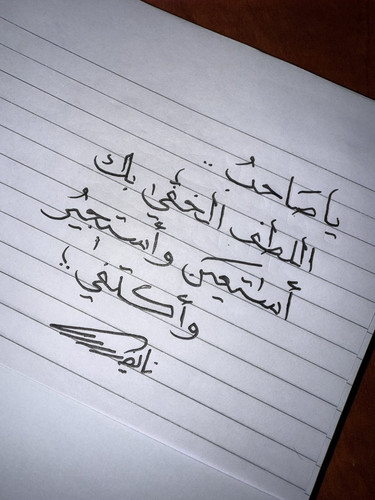 يا صَاحبُ ..
اللطف الخفيِّ بك
أستعين وأستجيرُ
وأكتفي !